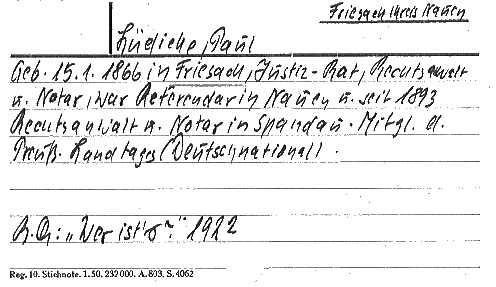 Friesach Kreis Nauen
Lüdicke, Paul
Geb. 15.1. 1866 in Friesach, Justiz-Rat, Rechtsanwalt
u. Notar, war Referendar in Nauen u. seit 1893
Rechtsanwalt u. Notar in Spandau. Mitgl. d.
Preuß. Landtages (Deutschnational).
"Wer ist's?" 1922
Reg. 10. Stichnote. 1. 50, 232 000. A. 803, S. 4062